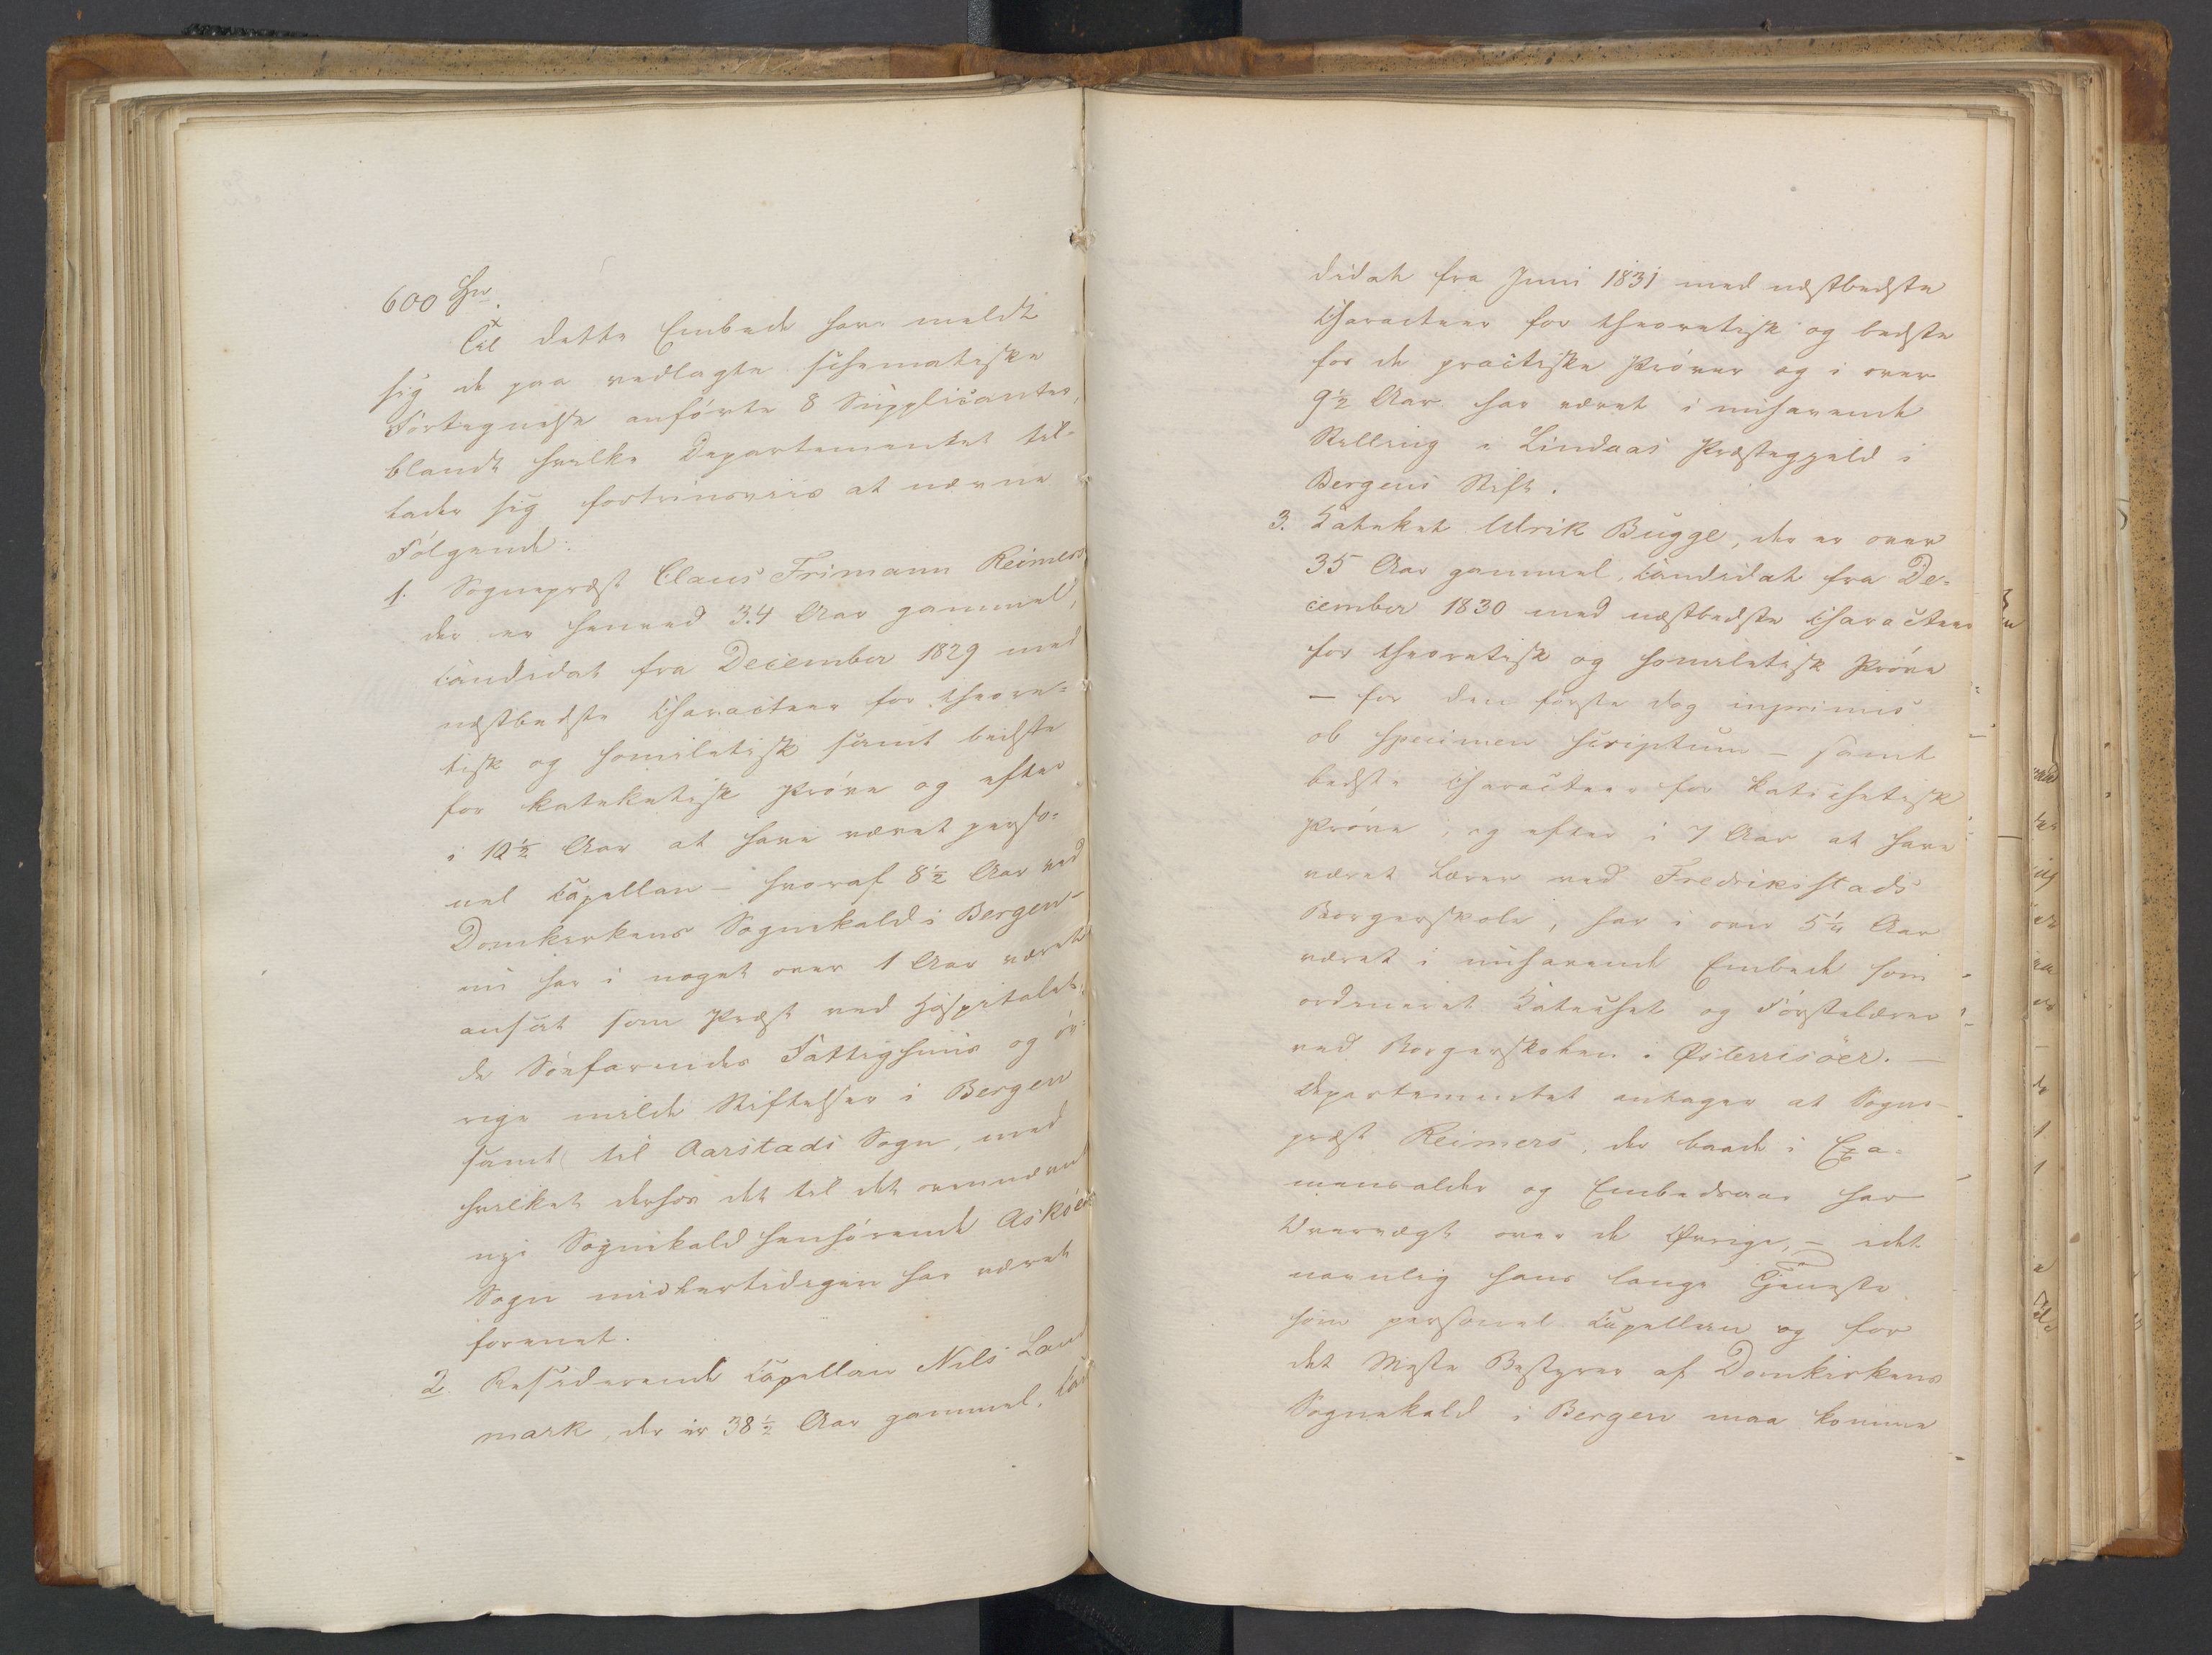 600 Spd.
Til dette Embede have meldt
sig de paa vedlagte schematiske
Fortegnelse anförte 8 Supplicantes,
blandt hvilke Departementet til-
lader sig fortrinsviis at nævne
Fölgende:
1. Sognepræst Claus Frimann Reimers
der er henved 34 Aar gammel,
Candidat fra December 1829 med
næstbedste Characteer for theore-
tisk og homiletisk samt bedste
for katekatisk Pröve og efter
i 10½ Aar at have været perso-
nel Capellan – hvoraf 8½ Aar ved
Domkirkens Sognekald i Bergen –
nu har i noget over 1 Aar været
ansat som Præst ved Hospitalet,
de Söefarendes Fattighuus og öv-
rige milde Stiftelser i Bergen
samt til Aarstads Sogn, med
hvilket derhos det til det ommeldte
nye Sognekald henhörende Asköens
Sogn midlertidigen har været
forenet.
2. Residerende Capellan Nils Land
mark, der er 38½ Aar gammel, Can
didat fra Juni 1831 med næstbedste
Characteer for theoretisk og bedste
for de practiske Pröver og i over
9½ Aar har været i nuhavende
Stilling i Lindaas Præstegjeld i
Bergens Stift.
3. Kateket Ulrik Bugge, der er over
35 Aar gammel, Candidat fra De-
cember 1830 med næstbedste Characteer
for theoretisk og homiletisk Pröve
– for den förste dog inprimis
ob specimen scriptum – samt
bedste Characteer for katechetisk
Pröve, og efter i 7 Aar at have
været Lærer ved Fredriksstads
Borgerskole, har i over 5¼ Aar
været i nuhavende Embede som
ordineret Catechet og Förstelærer
ved Borgerskolen i Østerrisöer. –
Departementet antager at Sogne-
præst Reimers, der baade i Exa-
mensalder og Embedsaar har
Overvægt over de Øvrige, – idet
navnlig hans lange Tjeneste
som personel Capellan og for
det Meste Bestyrer af Domkirkens
Sognekald i Bergen maa komme